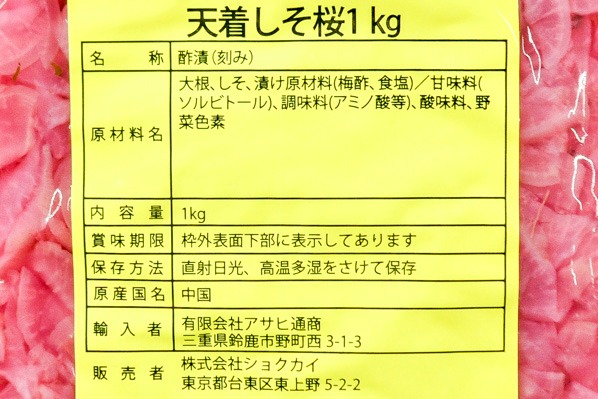 天着しそ桜1kg
名称 酢漬(刻み)
原材料名 大根、しそ、漬け原材料(梅酢、食塩)／甘味料(
ソルビトール)、調味料(アミノ酸等)、酸味料、野
菜色素
内容量 1kg
賞味期限 枠外表面下部に表示してあります
保存方法 直射日光、高温多湿をさけて保存
原産国名 中国
輸入者 有限会社アサヒ通商
三重県鈴鹿市野町西 3-1-3
販売者 株式会社ショクカイ
東京都台東区東上野 5-2-2